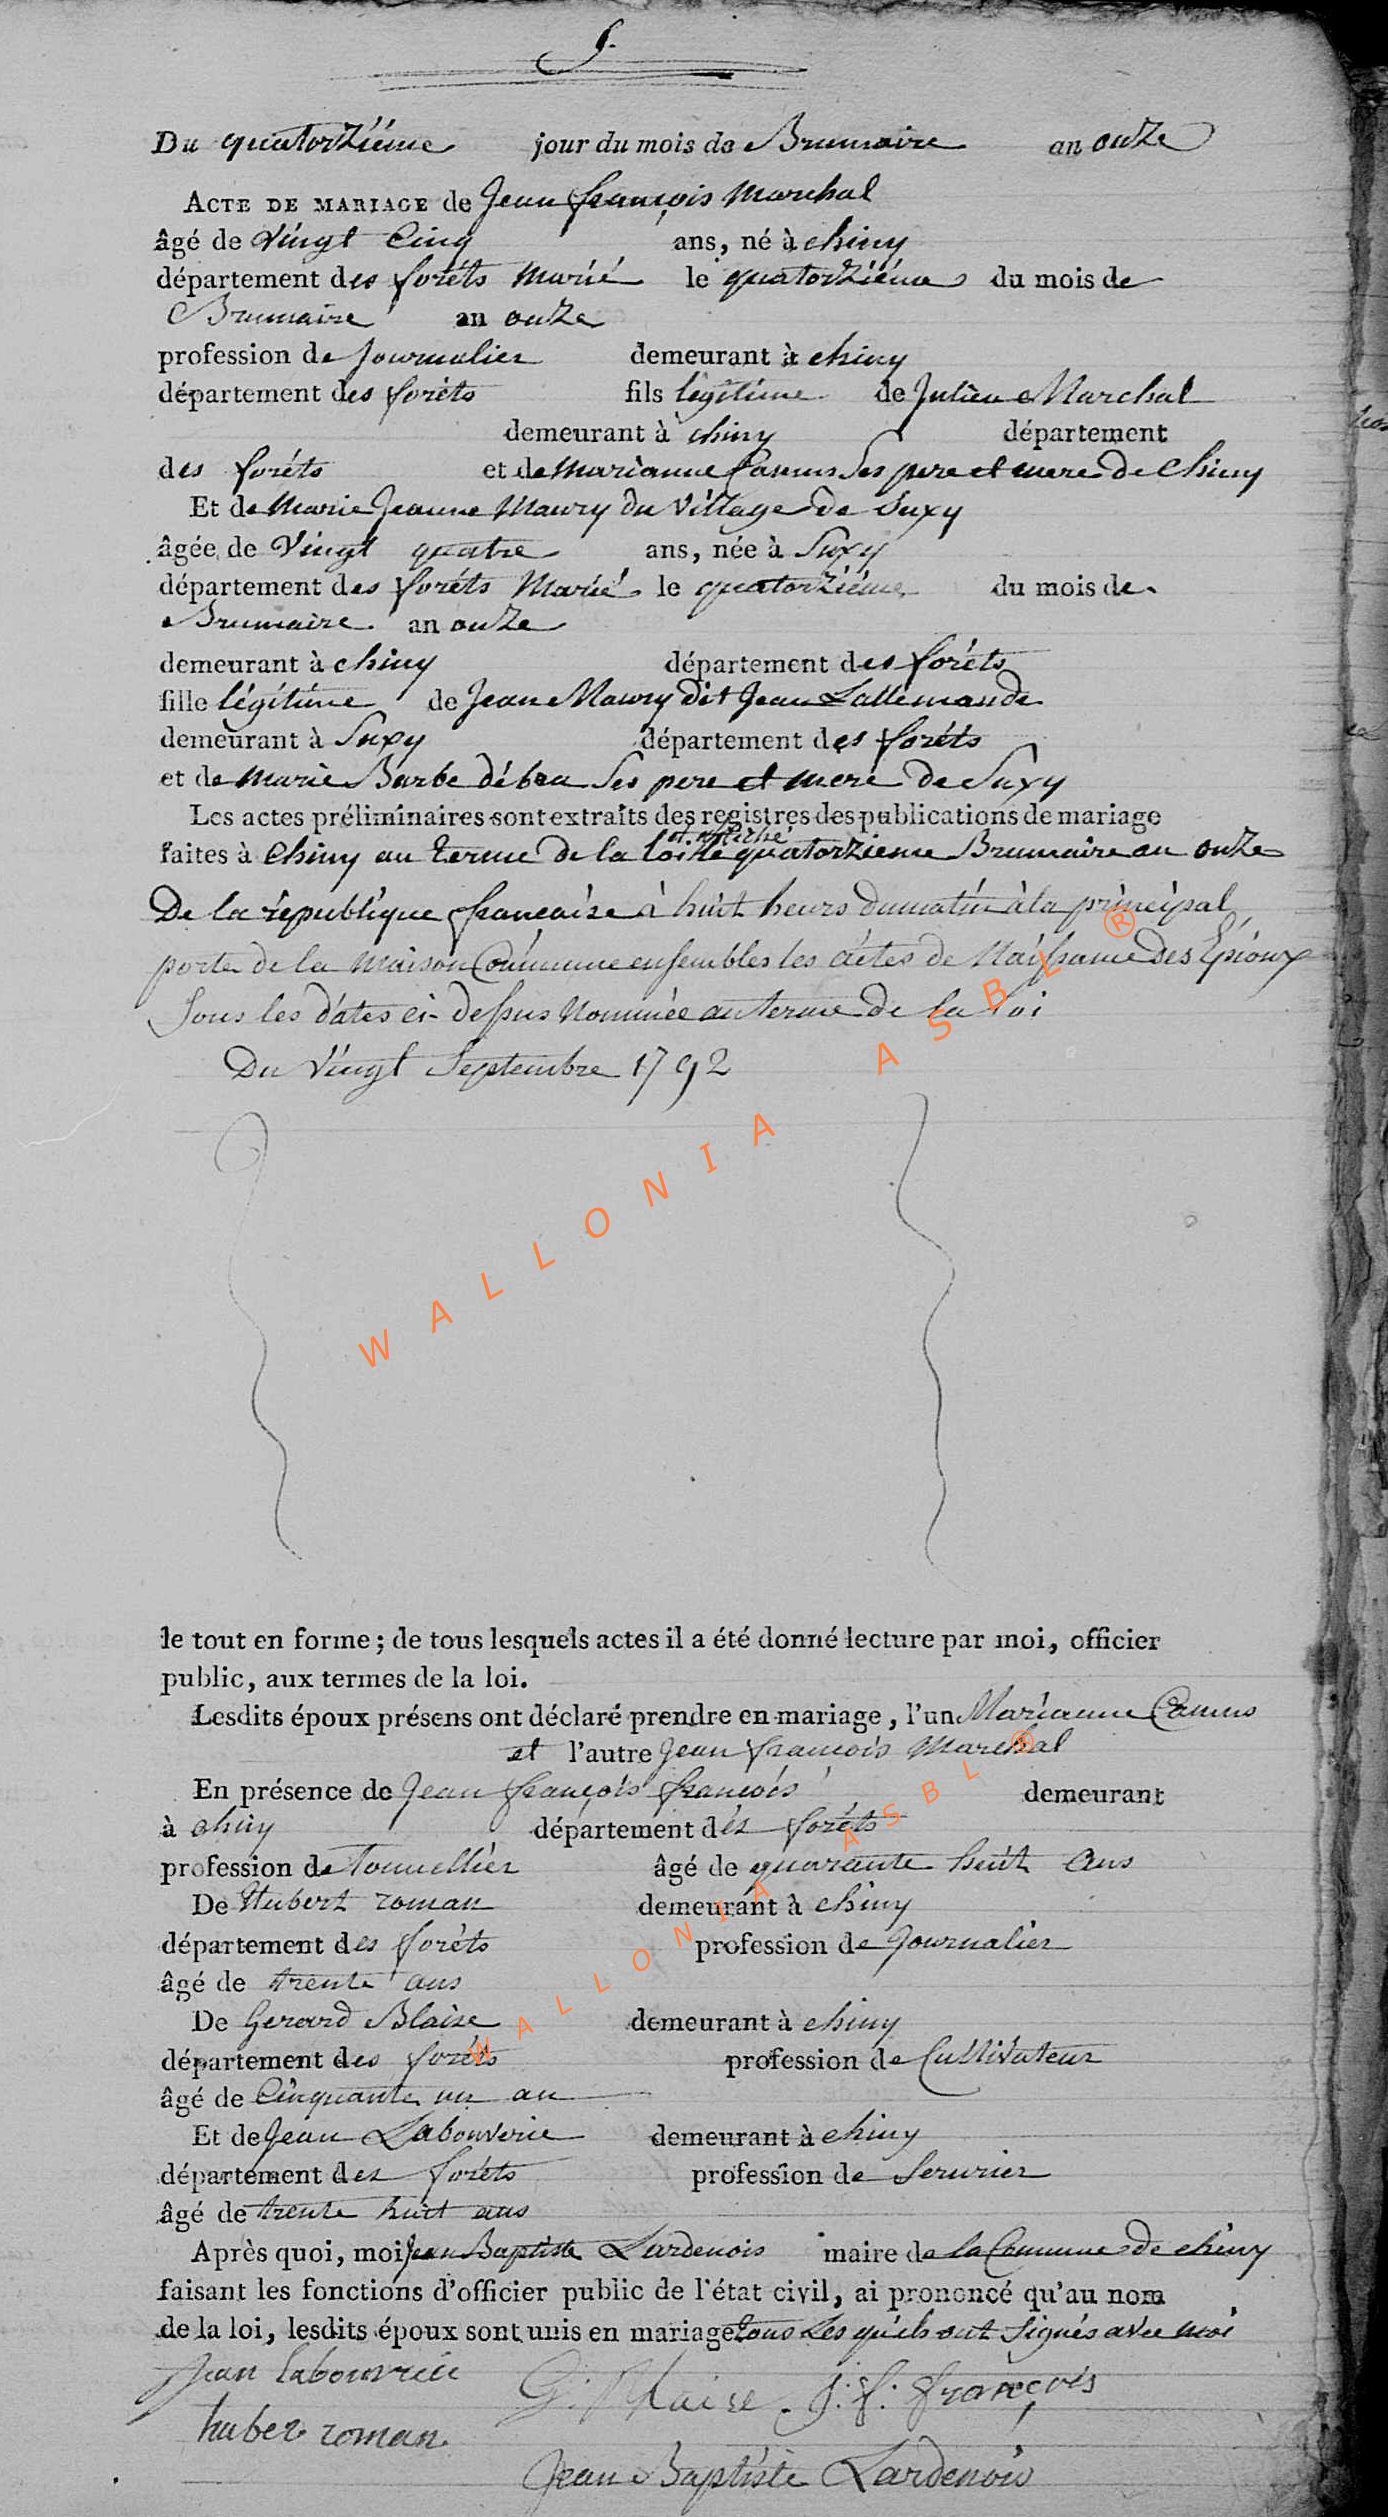 5.
Du quatorziéme jour du mois de Brumaire an onze
ACTE DE MARIAGE de Jean françois Marchal
âgé de Vingt Cinq ans, né à chiny
département des foréts Marié le quatorziéme du mois de
Brumaire an onze
profession de Journalier demeurant à chiny
département des foréts fils légitime de Julien Marchal
demeurant à chiny département
des foréts et de Marianne Camus Ses pere et mere de Chiny
Et de Marie Jeanne Maury du Village de Suxy
âgée de Vingt quatre ans, née à Suxy
département des foréts Marié le quatorziéme du mois de
Brumaire an onze
demeurant à chiny département des foréts
fille légitime de Jean Maury dit Jean Lallemande
demeurant à Suxy département des foréts
et de Marie Barbe débra Ses pere et mere de Suxy
Les actes préliminaires sont extraits des registres des publications de mariage
et affiché
faites à Chiny au terme de la loi le quatorzieme Brumaire an onze
De la république francaise à huit heurs du matin à la principal
porte de la Maison Commune ensembles les actes de Naissance Des Epioux
Sous les dates ci-dessus Nommée au terme de la loi
Du Vingt Septembre 1792
le tout en forme ; de tous lesquels actes il a été donné lecture par moi, officier
public, aux termes de la loi.
Lesdits époux présens ont déclaré prendre en mariage, l'un Marianne Camus
et l'autre Jean francois Marchal
En présence de Jean françois francois demeurant
à chiny département des foréts
profession de Tonnellier âgé de quarante huit ans
De Hubert roman demeurant à chiny
département des foréts profession de Journalier
âgé de trente ans
De Gerard Blaise demeurant à chiny
département des foréts profession de Cultivateur
âgé de Cinquante un an
Et de Jean Labouverie demeurant à chiny
département des foréts profession de Serurier
âgé de trente huit ans
Après quoi, moi Jean Baptiste Lardenois maire de la Commune de chiny
faisant les fonctions d'officier public de l'état civil, ai prononcé qu'au nom
de la loi, lesdits époux sont unis en mariage tous Les quels ont Signés avec moi
Jean labouvrie G: Blaise J: f: françois
huber roman
Jean Baptiste Lardenois
WALLONIA ASBL ®
WALLONIA ASBL ®